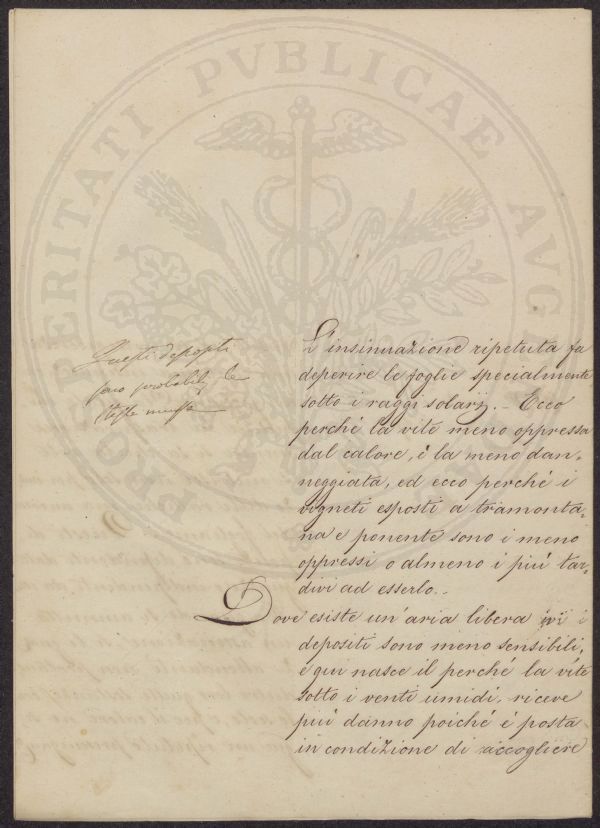 PROSPERITATI PVBLICAE AVGENDAE
Questi depositi
sono probabil. le
stesse muffe
L'insinuazione ripetuta fa
deperire le foglie specialmente
sotto i raggi solarij. - Ecco
perché la vite meno oppressa
dal calore, é la meno dan„
neggiata, ed ecco perché i
vigneti esposti a tramonta„
na e ponente sono i meno
oppressi o almeno i piú tar„
divi ad esserlo..
Dove esiste un'aria libera ivi i
depositi sono meno sensibili,
e qui nasce il perché la vite
sotto i venti umidi, riceve
piú danno poiché é posta
in condizione di accogliere